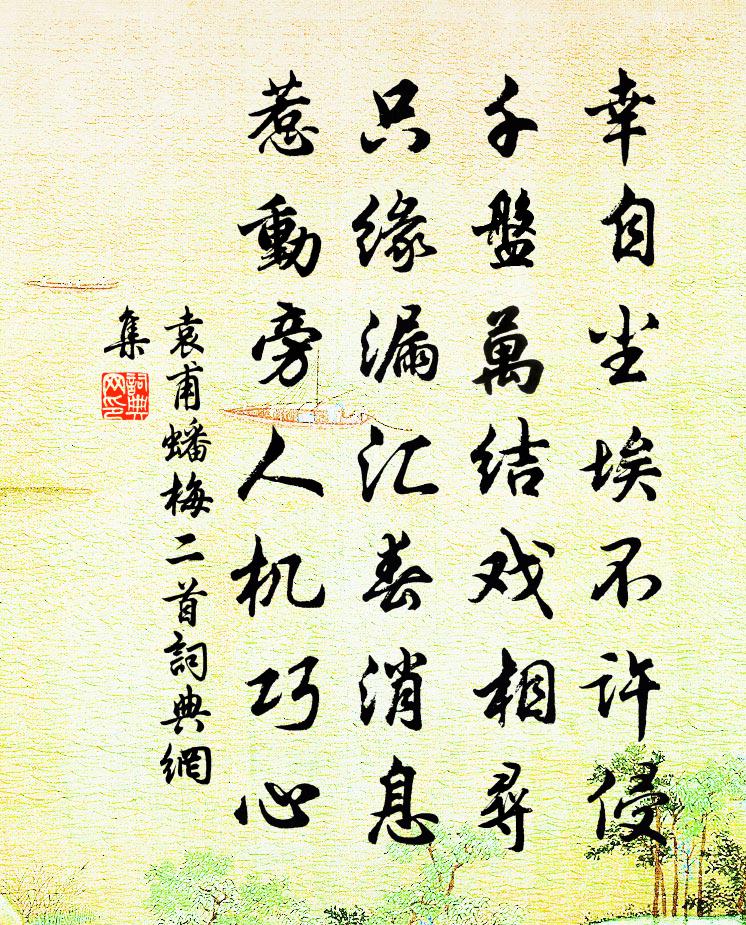 幸自尘埃不许侵
千盤萬结戏相尋
只缘漏汇春消息
惹動旁人机巧心
袁甫蟠梅二首詞典網
集
詞典
网印